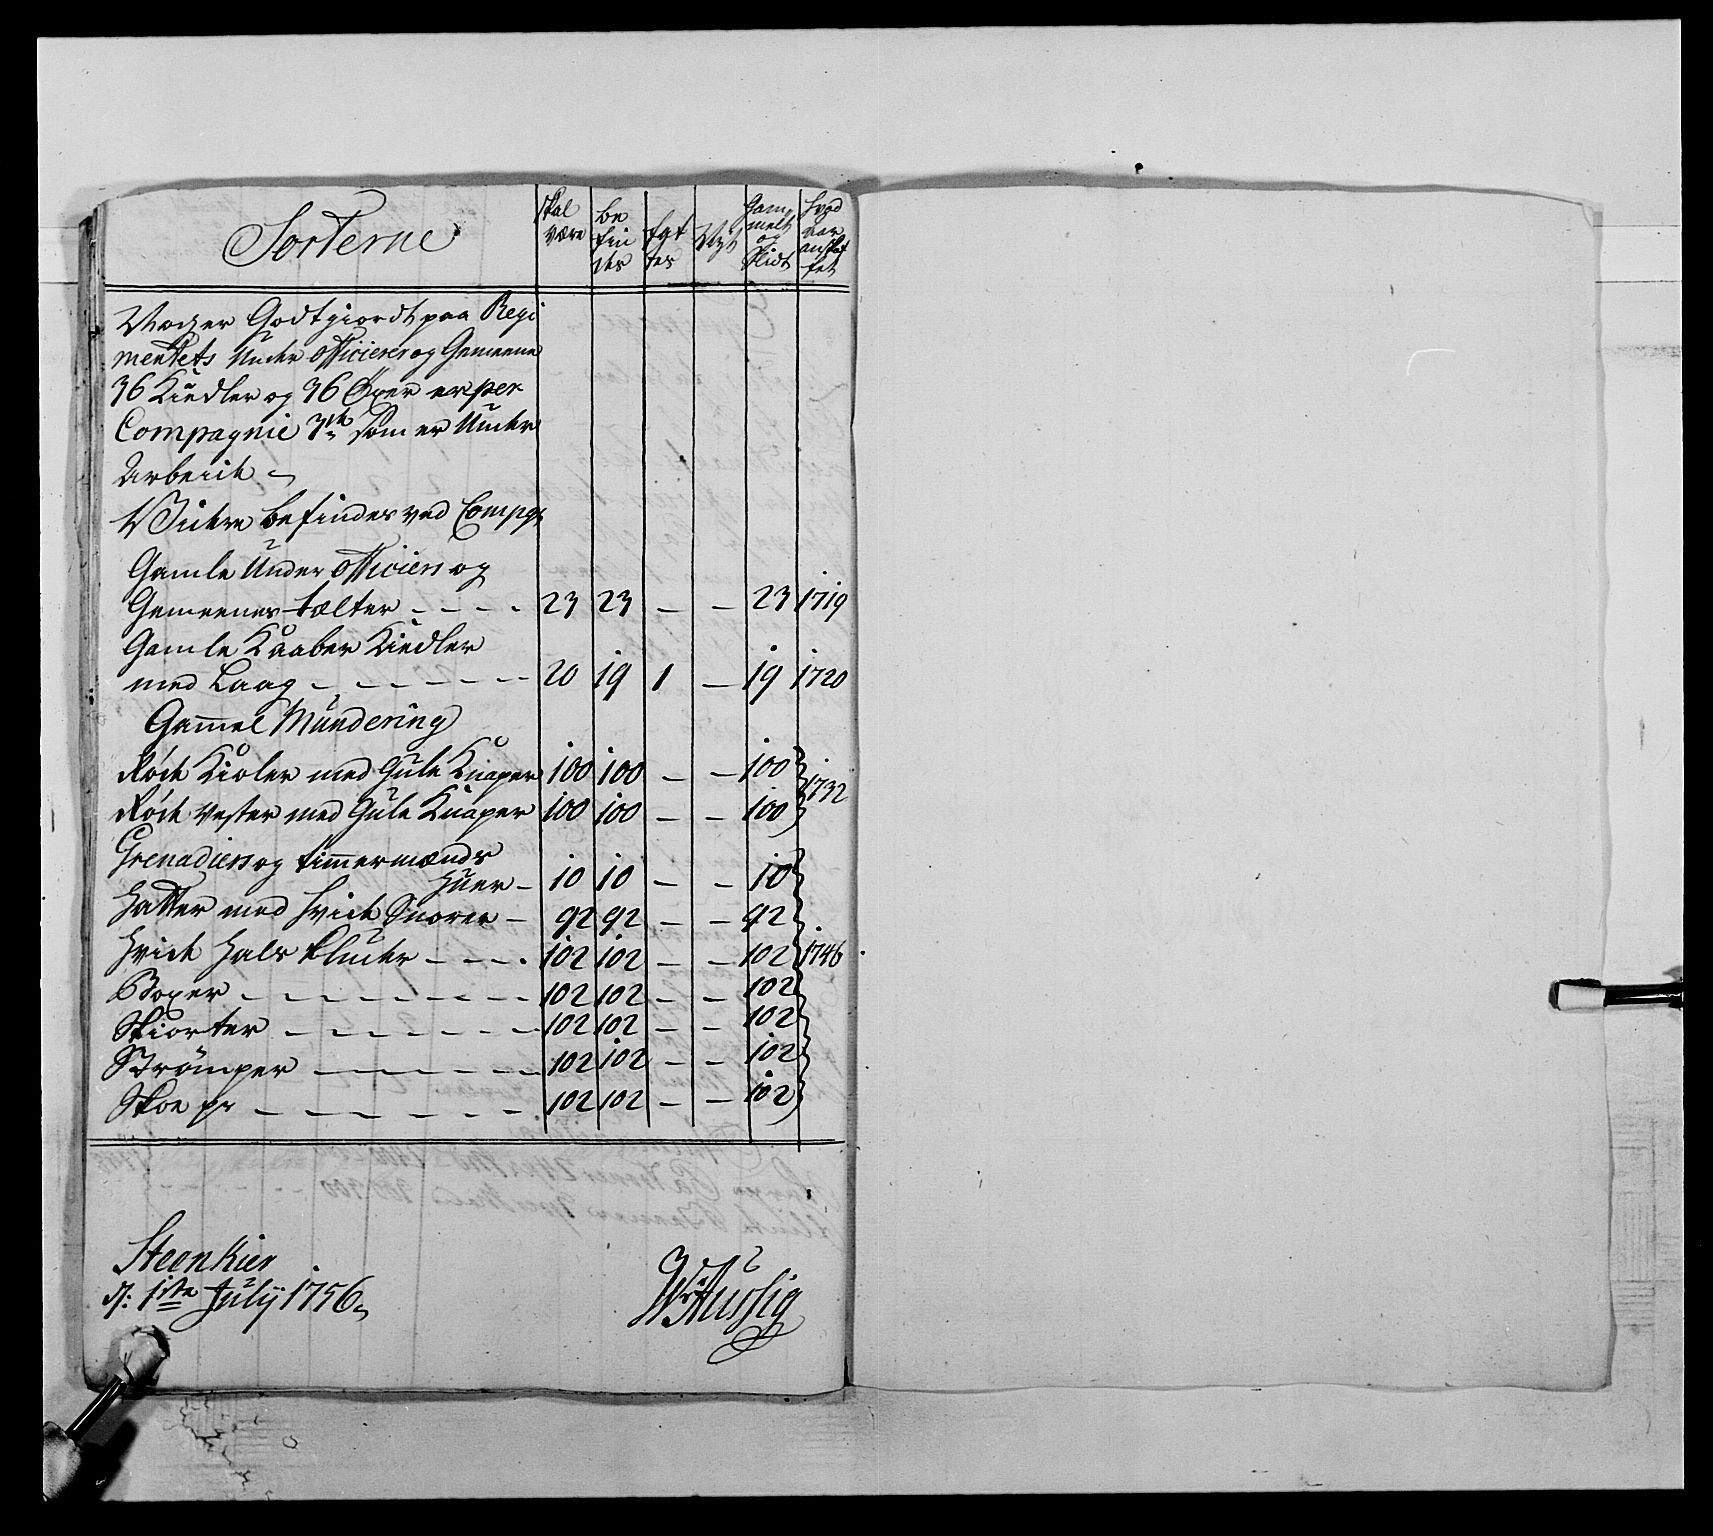 Sorterne
skal være
be fin des
fat tes
Nyt
Gam melt og Slidt
hvad aar anskaf fet
Noch er Godtgiordt paa Regi
mentets Under officierer og Gemeene
36 Kiedler og 36 Øxer er per
Compagnie 3de som er Under
Arbeide
Viidere befindes ved Compge
Gamle Under officiers og
Gemeenes tælter - - - - 23 23 - - 23 1719
Gamle Kaaber Kiedler
med Laag - - - - - - 20 19 1 - 19 1720
Gammel Mundering
Røde Kioler med Gule Knaper 100 100 - - 100
Røde Vester med Gule Knaper 100 100 - - 100 1732
Grenadiers og timmermænds
Huer - 10 10 - - 10
Hatter med hvide Snorer - 92 92 - - 92
Hvide Hals klude - - - - 102 102 - - 102 1746
Boxer - - - - - - - 102 102 - - 102
Skiorter - - - - - - 102 102 - - 102
Strømper - - - - - 102 102 - - 102
Skoe pr - - - - - - 102 102 - - 102
Steenkier
d: 1ste Julij 1756
Aussig